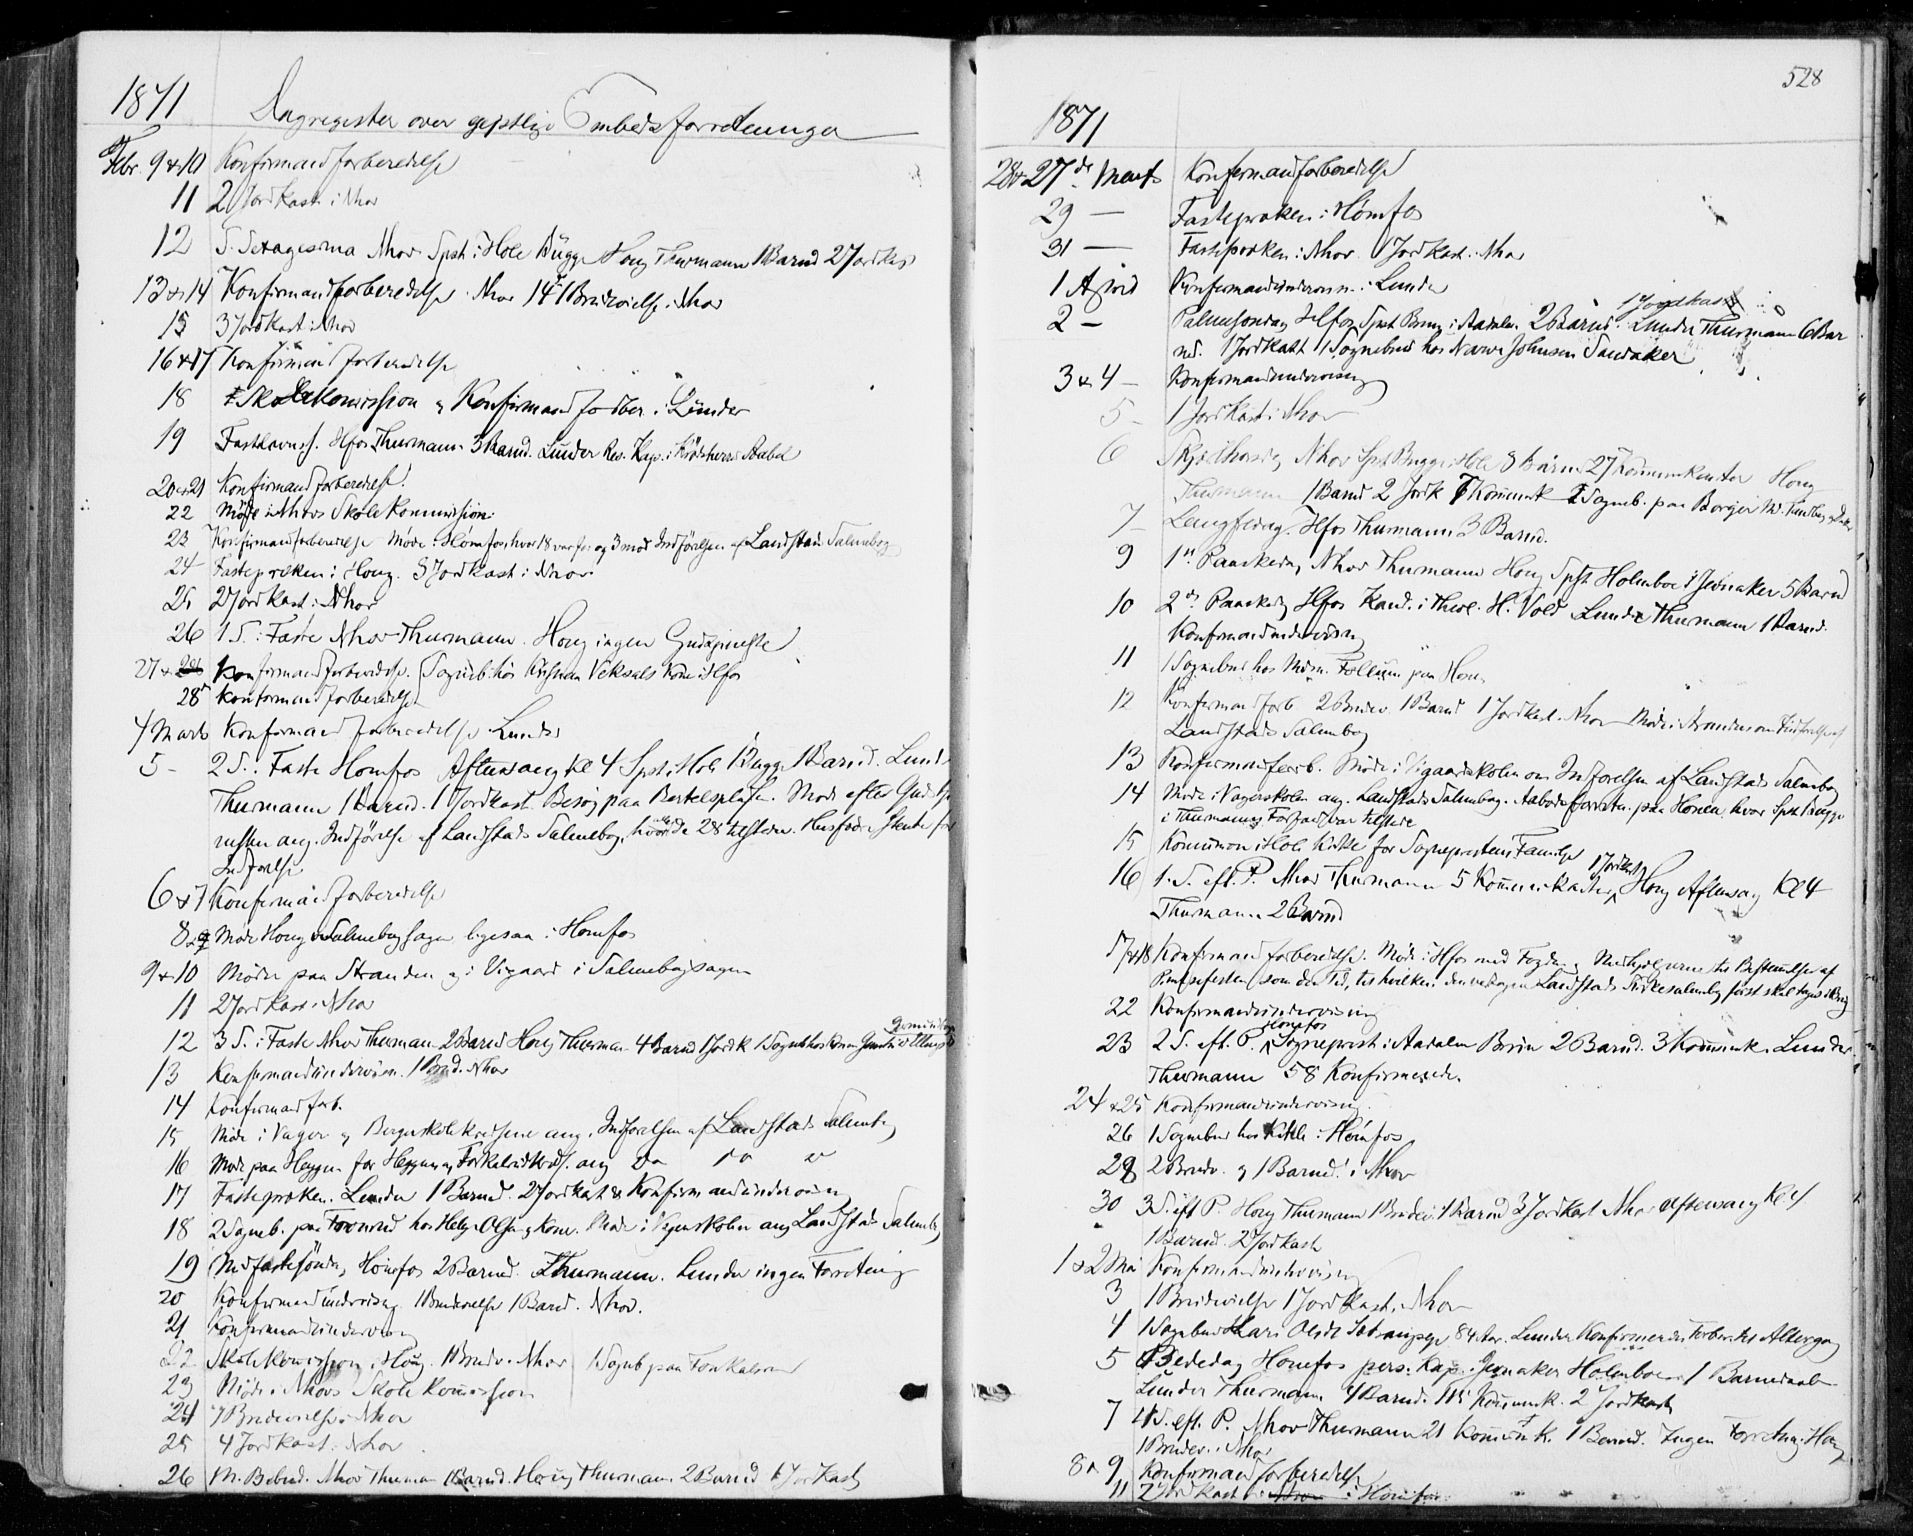 1871
Dagregister over geistlige Embedsforretninger
Febr. 9 & 10 Konfirmandforberedelse
11 2 Jordkast. i Nhov
12 S. Sexagesima Nhov Spst. i Hole Bugge Houg Thurmann 1 Barnd 2 Jordkast
13 & 14 Konfirmandforberedelse. Nhov 14 1 Brudevielse i Nhov
15 3 Jordkast i Nhov
16 & 17 Konfirmandforberedelse
18 Skolekomission og Konfirmandforber. i Lunder
19 Fastelavns. Hfos Thurmann 3 Barnd. Lunder Res. Kap. i Krødsherred Aabel
20 & 21 Konfirmandforberedelse.
22 Møde i Nhovs Skolekommission
23 Konfirmandforberedelse Møde i Honefos, hvor 18 var for og 3 mod Indførelsen af Landstads Salmebog
24 Fasteprœken i Houg. 3 Jordkast i Nhov
25 2 Jordkast i Nhov
26 1 S. i Faste Nhov Thurmann. Houg ingen Gudstjeneste
27 & Konfirmandforberedelse. 1 Sogneb. hos Kone i Hfos
28 Konfirmandforberedelse
4 Marts Konfirmandforberedelse Lunder
5 - 2 S. i Faste Honefos Aftensang Kl 4 Spst. i Hole Bugge 1 Barnd. Lunder
Thurmann 1 Barnd. 1 Jordkast Besøg paa Bertelspladsen. Møde efter Gudstje
nesten ang. Indførelse af Landstads Salmebog, 28 tilstede. Husfædre stemte for
Indførelse
6 & 7 Konfirmandforberedelse
8 & 9 Møde Houg Salmebogsagen ligesaa i Honefos
9 & 10 Møder paa Stranden og i Vigaard i Salmebogsagen
11 2 Jordkast i Nhov
12 3 S. i Faste Nhov Thurmann 2 Barnd Houg Thurmann 4 Barnd 1 Jordk 1 Sogneb hos
13 Konfirmandundervisn. 1 Brud. Nhov
14 Konfirmandforb.
15 Møde i Vager og Berger skolekredsene ang. Indførelsen af Landstads Salmebog
16 Møde paa Heggen for Heggen og ang Do
17 Fasteprœken. Lunder 1 Barnd. 2 Jordkast & Konfirmandundervisning
18 2 Sogneb. paa hos Helge Olsen og Kone. Møde i ang Landstads Salmebog
19 Midfastesøndag Hönefos 2 Barnd. Thurmann. Lunder ingen Forretning
20 Konfirmandundervisng 1 Brudevielse 1 Barnd. Nhov.
21 Konfirmandundervisning
22 Skolekomission i Houg. 1 Brudv. Nhov 1 Sogneb paa
23 Møde i Nhovs Skolekomission
24 1 Brudevielse i Nhov
25 4 Jordkast i Nhov
26 M. Bebud. Nhov Thurman 1 Barnd. Houg Thurmann. 2 Barnd 1 Jordkast
528
1871
28 & 27de Marts Konfirmandforberedelse
29 — Fasteprœken i Hönefos
31 — Fasteprœken i Nhov 1 Jordkast. Nhov
1 April Konfirmandundervisn. i Lunder
2 - Palmesøndag Hfos Spst i Aadalen 2 Barnd. 1 Jordkast Lunder Thurmann 6 Bar
nd. 1 Jordkast 1 Sognebud hos Johnsen
3 & 4 - Konfirmandundervisng
5 - 1 Jordkast i Nhov
6 Skjærthorsdag Nhov Spst Bugge i Hole 3 Barn 27 Kommunikanter Houg
Thurmann 1 Barnd 2 Jordk 7 Komunik 2 Sogneb. paa Berger
7 - Langfredag Hfos Thurmann 3 Barnd.
9 1n Paaskedag Nhov Thurmann Houg Spst Holmboe i Jevnaker 5 Barnd
10 2n Paaskedg Hfos Kand. i Theol. H. Vold Lunder Thurmann 1 Barnd.
Konfirmandundervisng
11 1 Sognebud hos Follum paa Honen
12 Konfirmandforb 2 Brudev. 1 Barnd 1 Jordkast. Nhov Møde i Stranden om Indførelse af
Landstads Salmebog
13 Konfirmandforb. Møde i Vigaardskolen om Indførelsen af Landstads Salmebog
14 Møde i Vagerskolen ang. Landstads Salmebog. paa Honen, hvor Spst Bugge
i Thurmanns Forfald var tilstede
15 Kommunion i Hole Kirke for Sogneprestens Familie
16 1. S. eft. P. Nhov Thurmann 5 Kommunikanter 1 Jordkast Houg Aftensang Kl 4
Thurmann 2 Barnd
17 & 18 Konfirmandforberedelse. Møde i Hfos med Fogden og Medhjælperne til Bestemmelse af
Pintsefesten som den Tid, til hvilken Landstads Kirkesalmebog først skal tages i Brug
22 Konfirmandundervisning
23 2 S. eft. P. Honefos Sogneprest i Aadalen 2 Barnd. 3 Komunik. Lunder
Thurmann 58 Konfirmerede.
24 & 25 Konfirmandundervisning.
26 1 Sognebud hos i Hönfos
28 2 Brudv. og 1 Barnd. i Nhov
30 3 S. eft P. Houg Thurmann 1 Brudev. 1 Barnd 3 Jordkast Nhov Aftensang Kl 4
1 Barnd. 2 Jordkast
1 & 2 Mai Konfirmandundervisning
3 1 Brudevielse 1 Jordkast. Nhov
4 1 Sognebud Kari Olsdt 84 Aar. Lunder Konfirmeredes Forber. til Altergang
5 Bededag Honefos pers. Kap. i Jevnaker Holmboe 1 Barnedaab
Lunder Thurmann 4 Barnd. Komunik. 2 Jordkast
7 4 S. eft. P. Nhov Thurmann 21 Komunik. 1 Barnd. Ingen Forretn. i Houg
1 Brudev. i Nhov
8 & 9 Konfirmandforberedelse
11 2 Jordkast i Honefos